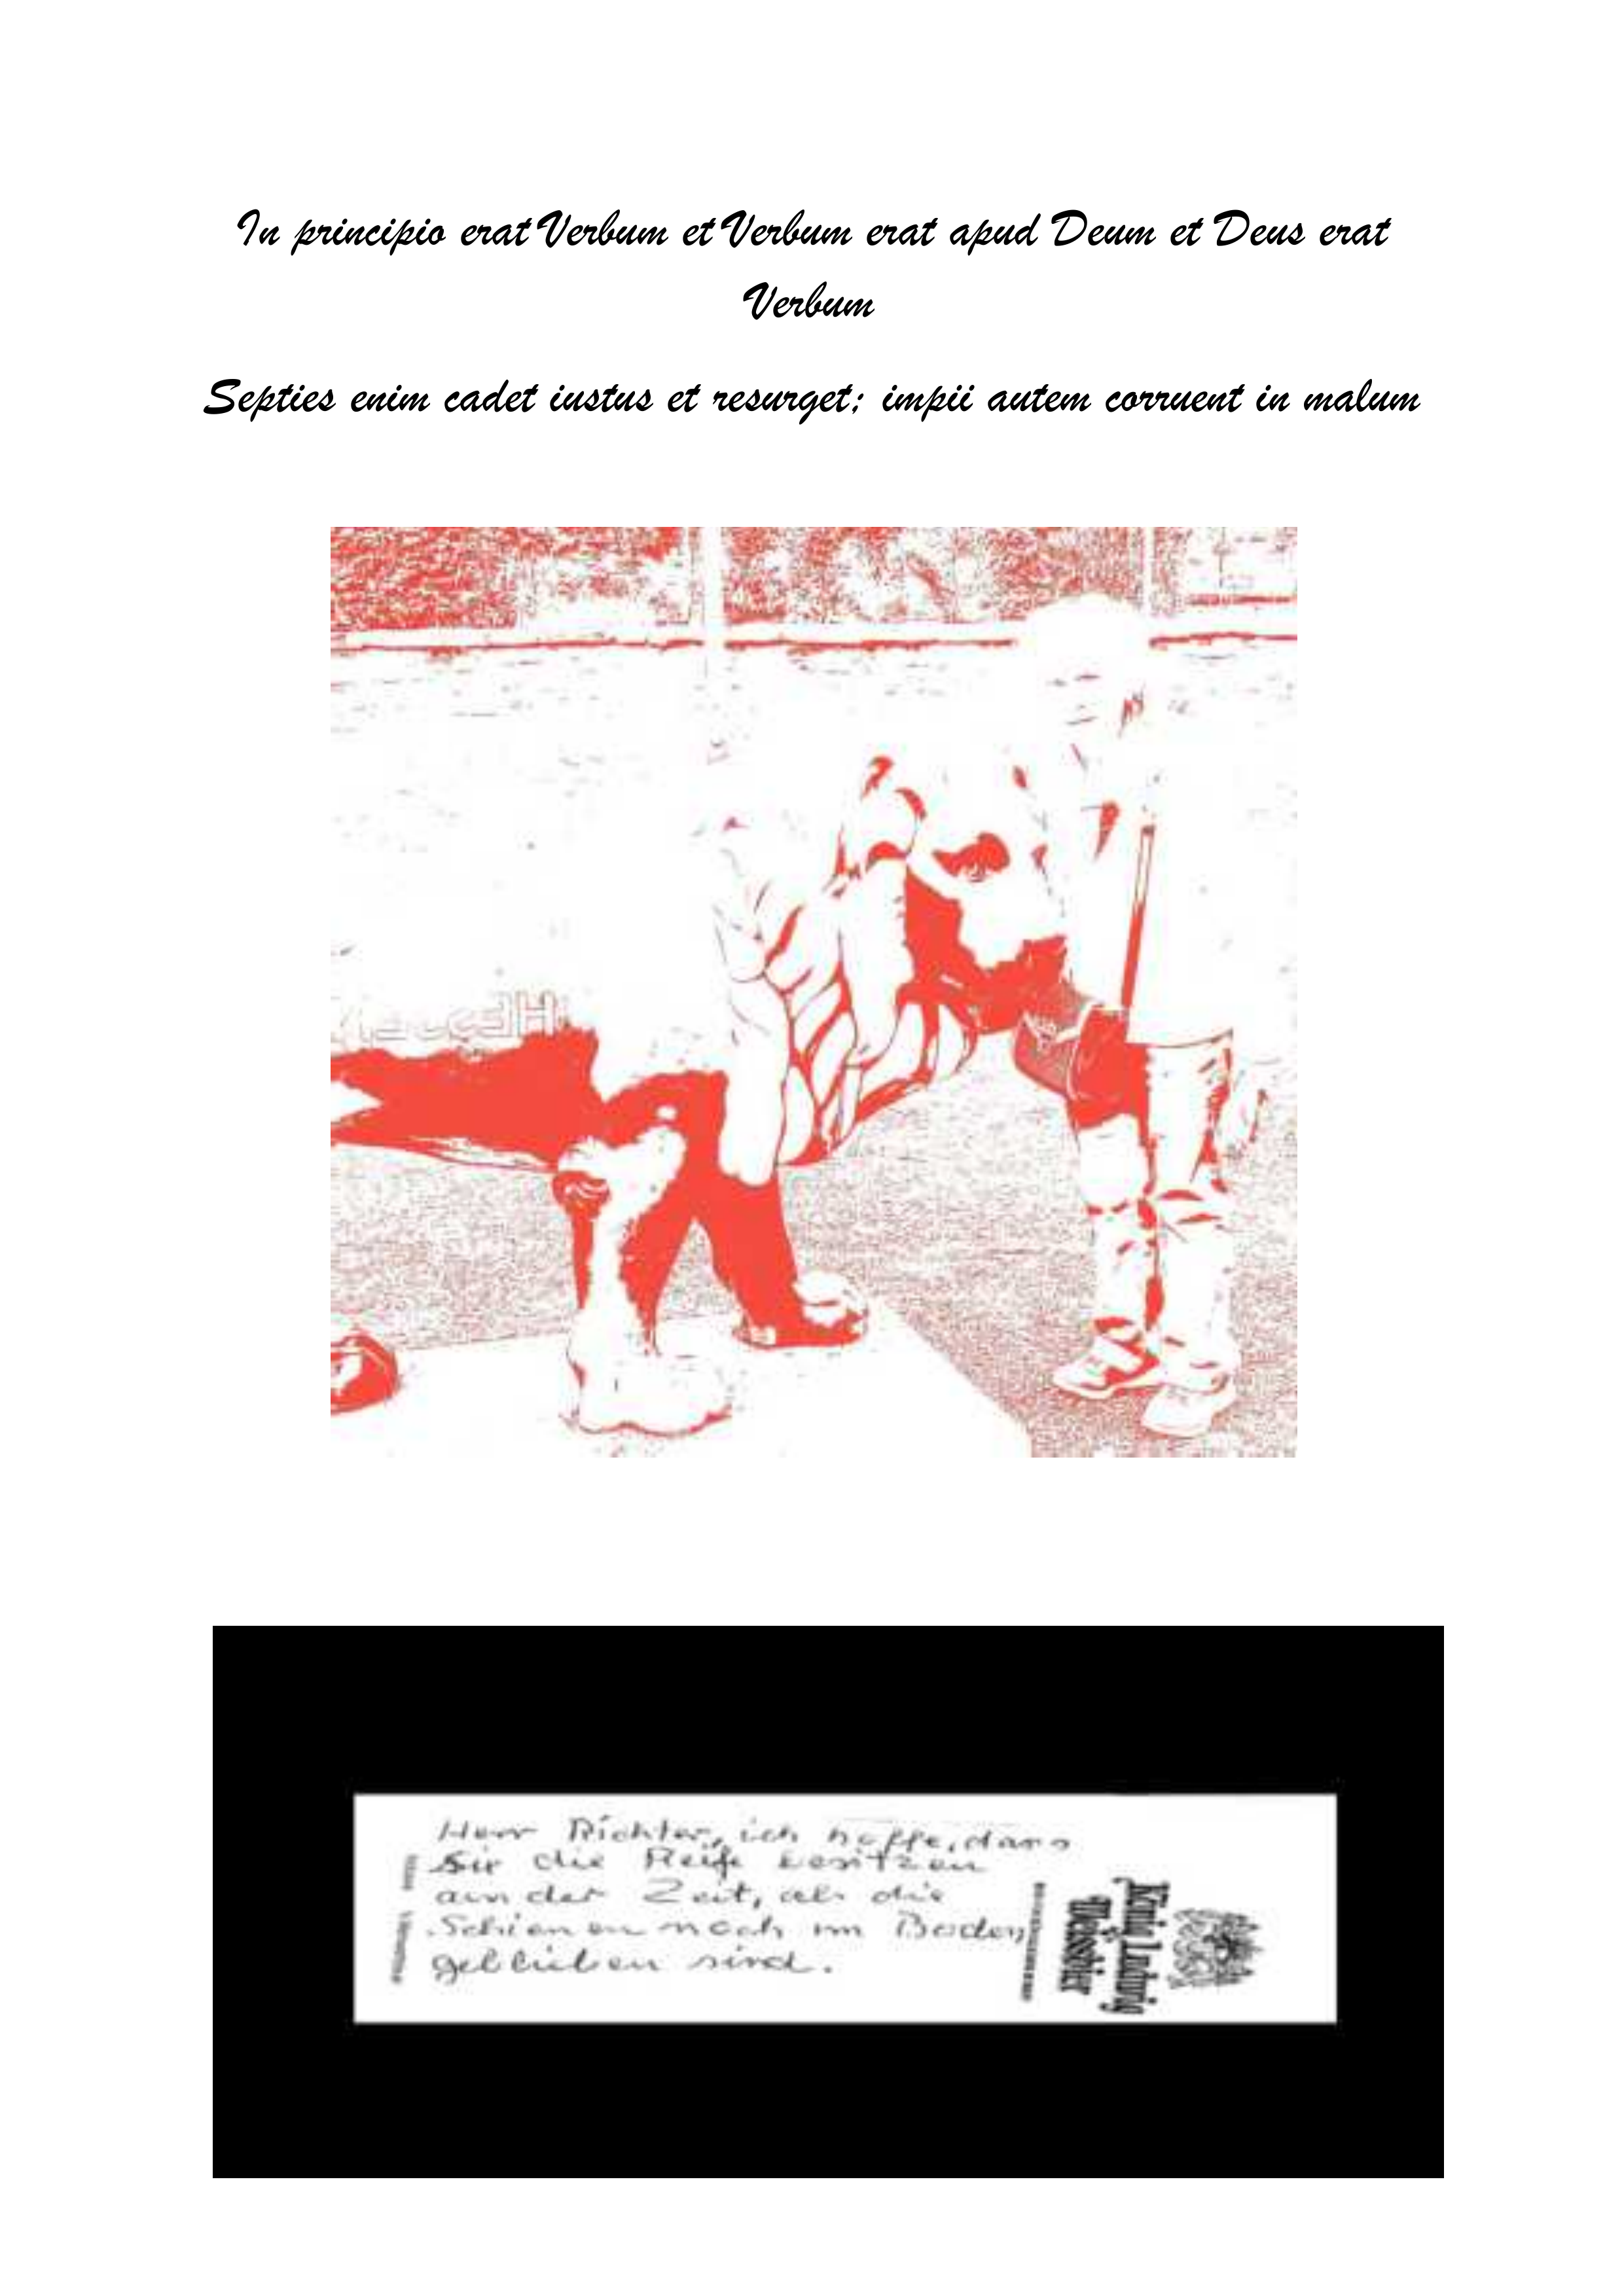 In principio erat Verbum et Verbum erat apud Deum et Deus erat
Verbum
Septies enim cadet iustus et resurget; impii autem corruent in malum
Herr Richter, ich hoffe, dass
Sie die Reife besitzen
aus der Zeit, als die
Schienen noch im Boden
geblieben sind.
König Ludwig
Weissbier